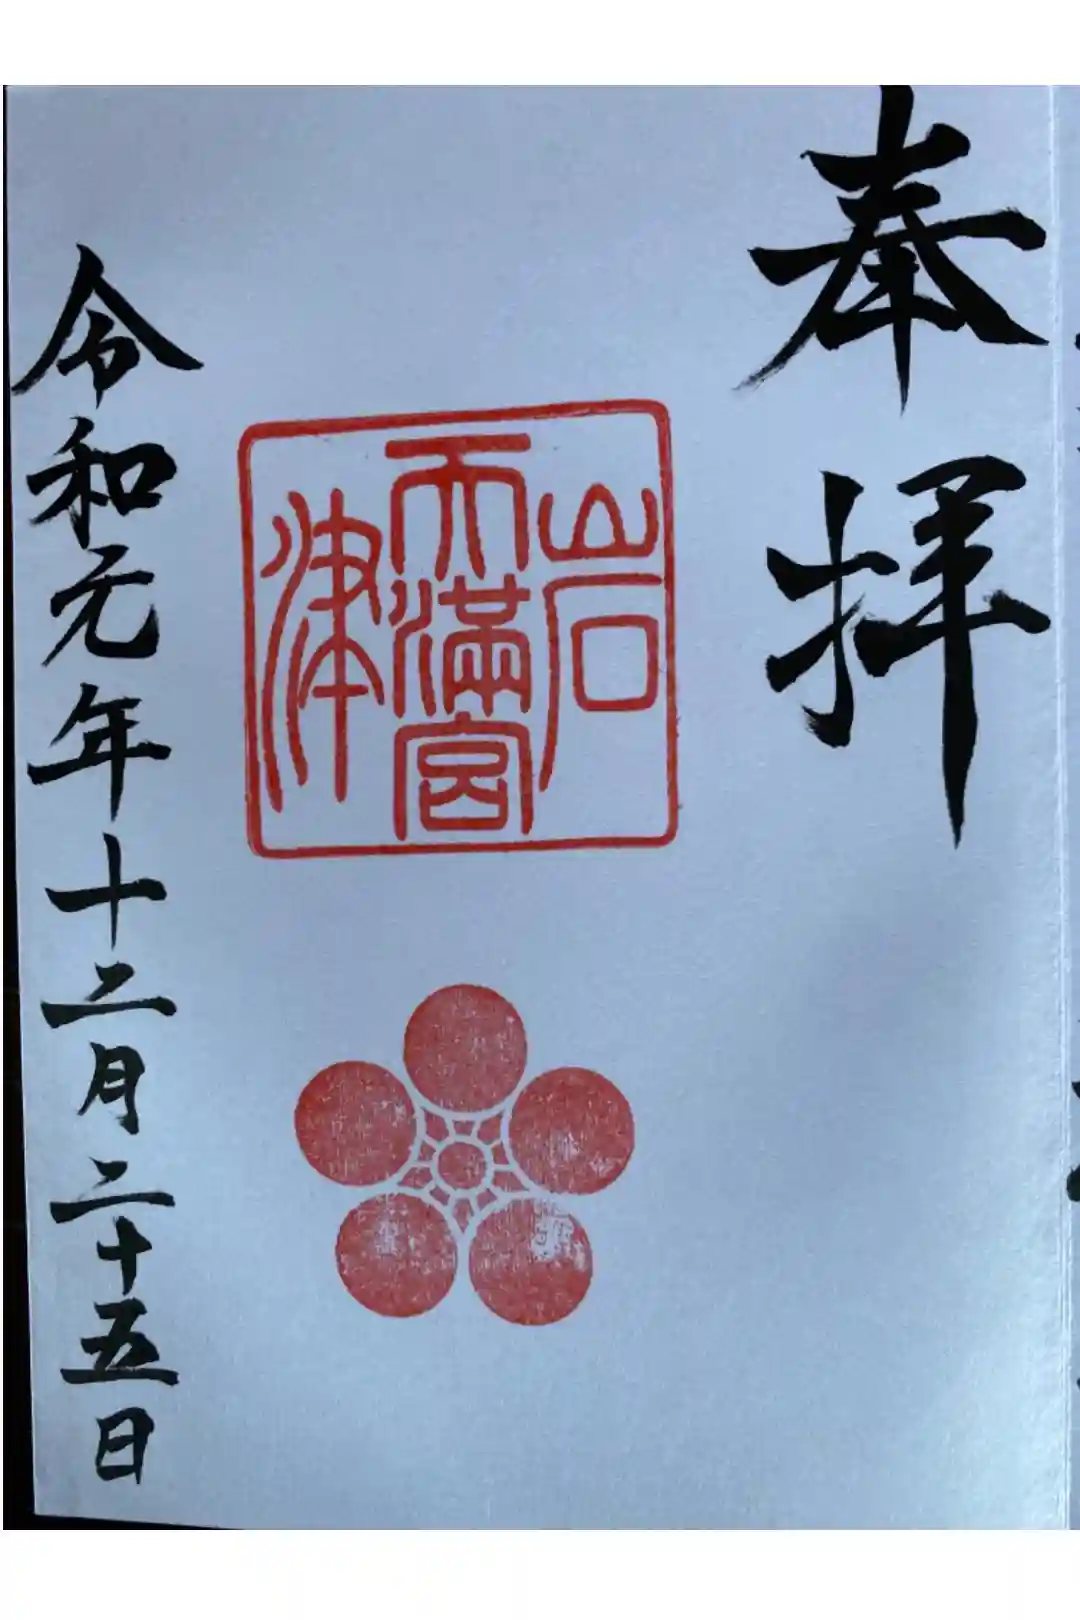 奉拝
岩
天満宮
津
令和元年十二月二十五日